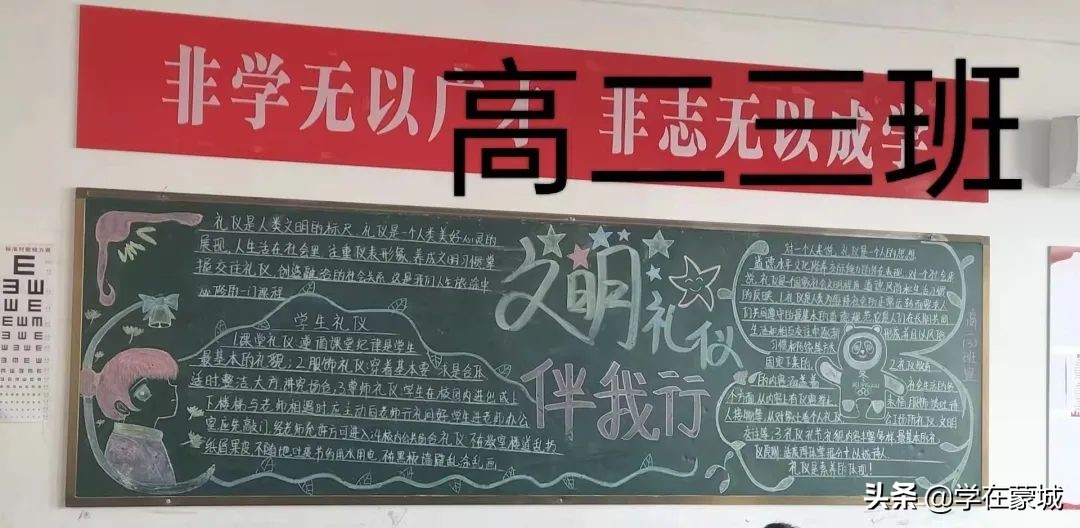 非学无以广才 非志无以成学
高二三班
标准对数视力表
礼仪是人类文明的标尺,礼仪是一个人类美好心灵的
展现,人生活在社会里,注重仪表形象,养成文明习惯,掌
握交往礼仪,创造融洽的社会关系,这是我们人生旅途中
的一门课程
学生礼仪
1课堂礼仪,遵守课堂纪律是学生
最基本的礼貌;2.服饰礼仪,穿着基本要求是合体
适时整洁大方,讲究场合;3尊师礼仪,学生在校园内进出或上
下楼梯与老师相遇时,应主动向老师行礼问好,学生进老师办公
室应先敲门,经老师允许方可进入;4校内公共场合礼仪,不在教室楼道乱书
纸屑果皮,不随地
用水用电,
黑板墙壁乱涂乱画
文明
礼仪
伴我行
对一个人来说,礼仪是一个人的思想
道德水平文化修养交际能力的外在表现,对一个社会来
说,礼仪是一个国家社会文明程度,道德风尚和生活习惯
的反映,1.礼仪是人类为维持社会的正常运转而要求人
们共同遵守的最基本的道德规范,它是人们在长期共同
生活和相互交往中逐渐
习惯和传统等方
固定下来的
2.礼仪教育
的内容
方面,从内容上有仪容举止
人接物等,从对象上看个人礼仪
公共场所礼仪
文明
交往等,3.礼仪礼节
内容丰富多样,最基本的礼
礼仪是素养的体现!
高二(3)班宣
头条 @学在蒙城